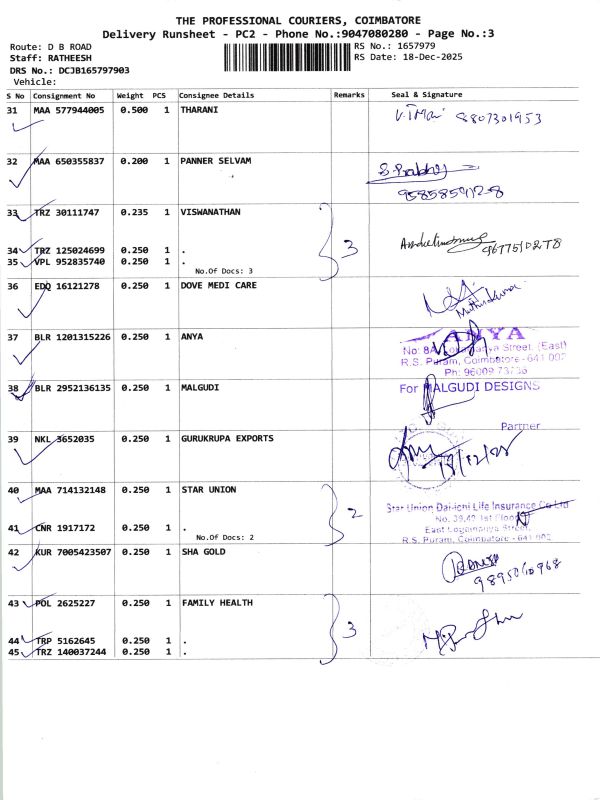 THE PROFESSIONAL COURIERS, COIMBATORE
Delivery Runsheet - PC2 - Phone No.:9047080280 - Page No.:3
Route: D B ROAD
RS No.: 1657979
Staff: RATHEESH
RS Date: 18-Dec-2025
DRS No.: DCJB165797903
Vehicle:
S No Consignment No Weight PCS Consignee Details Remarks Seal & Signature
31 MAA 577944005 0.500 1 THARANI
9807301953
32 MAA 650355837 0.200 1 PANNER SELVAM
S. Prabhu
33 TRZ 30111747 0.235 1 VISWANATHAN
3
34 TRZ 125024699 0.250 1 .
35 VPL 952835740 0.250 1 .
No.Of Docs: 3
36 EDQ 16121278 0.250 1 DOVE MEDI CARE
Muthukumar
37 BLR 1201315226 0.250 1 ANYA
ANYA
No: 8A, Logamanya Street, (East)
R.S. Puram, Coimbatore - 641 002
Ph: 96009 73736
38 BLR 2952136135 0.250 1 MALGUDI
For MALGUDI DESIGNS
Partner
39 NKL 3652035 0.250 1 GURUKRUPA EXPORTS
18/12/25
40 MAA 714132148 0.250 1 STAR UNION
2
Star Union Dai-ichi Life Insurance Co Ltd
No. 39,40 1st Floor
41 CNR 1917172 0.250 1 .
East Logamanya Street,
No.Of Docs: 2
R.S. Puram, Coimbatore - 641 002
42 KUR 7005423507 0.250 1 SHA GOLD
9895060968
43 POL 2625227 0.250 1 FAMILY HEALTH
3
44 TRP 5162645 0.250 1 .
45 TRZ 140037244 0.250 1 .